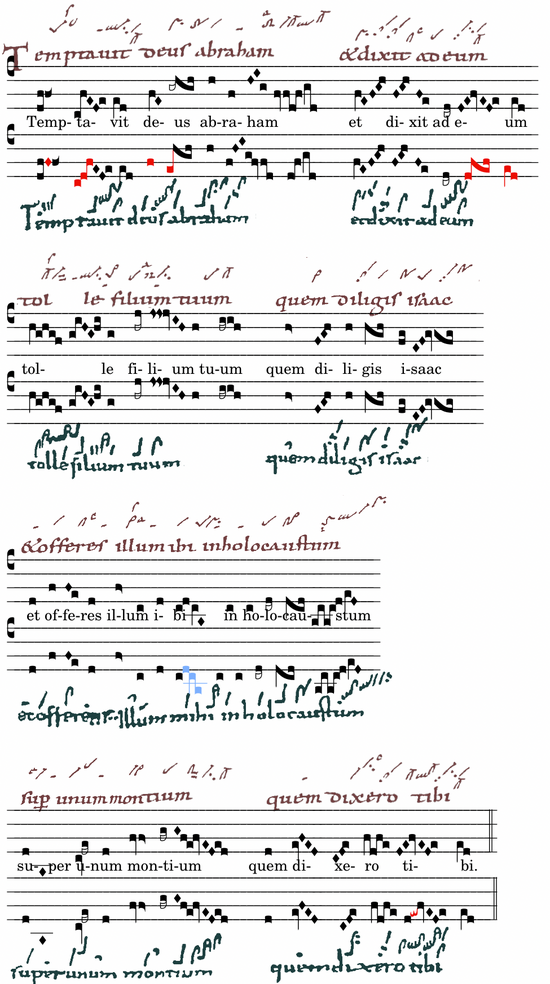 Temptavit deus abraham &dixit ad eum
Temp- ta- vit de- us ab-ra- ham et di- xit ad e- um
Temptavit deus abraham etdixit ad eum
tol le filium tuum quem diligis isaac
tol- le fi- li- um tu-um quem di- li- gis i-saac
tolle filium tuum quem diligis isaac
&offeres illum ibi inholocaustum
et of-fe-res il-lum i- bi in ho-lo-cau- stum
illum mihi in holocaustum
sup unum montium quem dixero tibi
su- per u-num mon-ti-um quem di- xe- ro ti- bi.
super unum montium quem dixero tibi